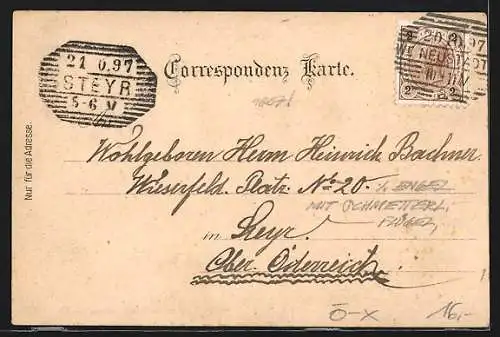 21 0.97
STEYR
5-6 N
Correspondenz Karte.
20 9 97
WR NEUSTADT
2 2
Nur für die Adresse.
Wohlgeboren Herrn Heinrich Bachner
Wieserfeld. Platz. No 20.
½ ENGEL
MIT SCHMETTERL.
FLÜGEL
in Steyr
Ober. Österreich
Ö-X
16,-